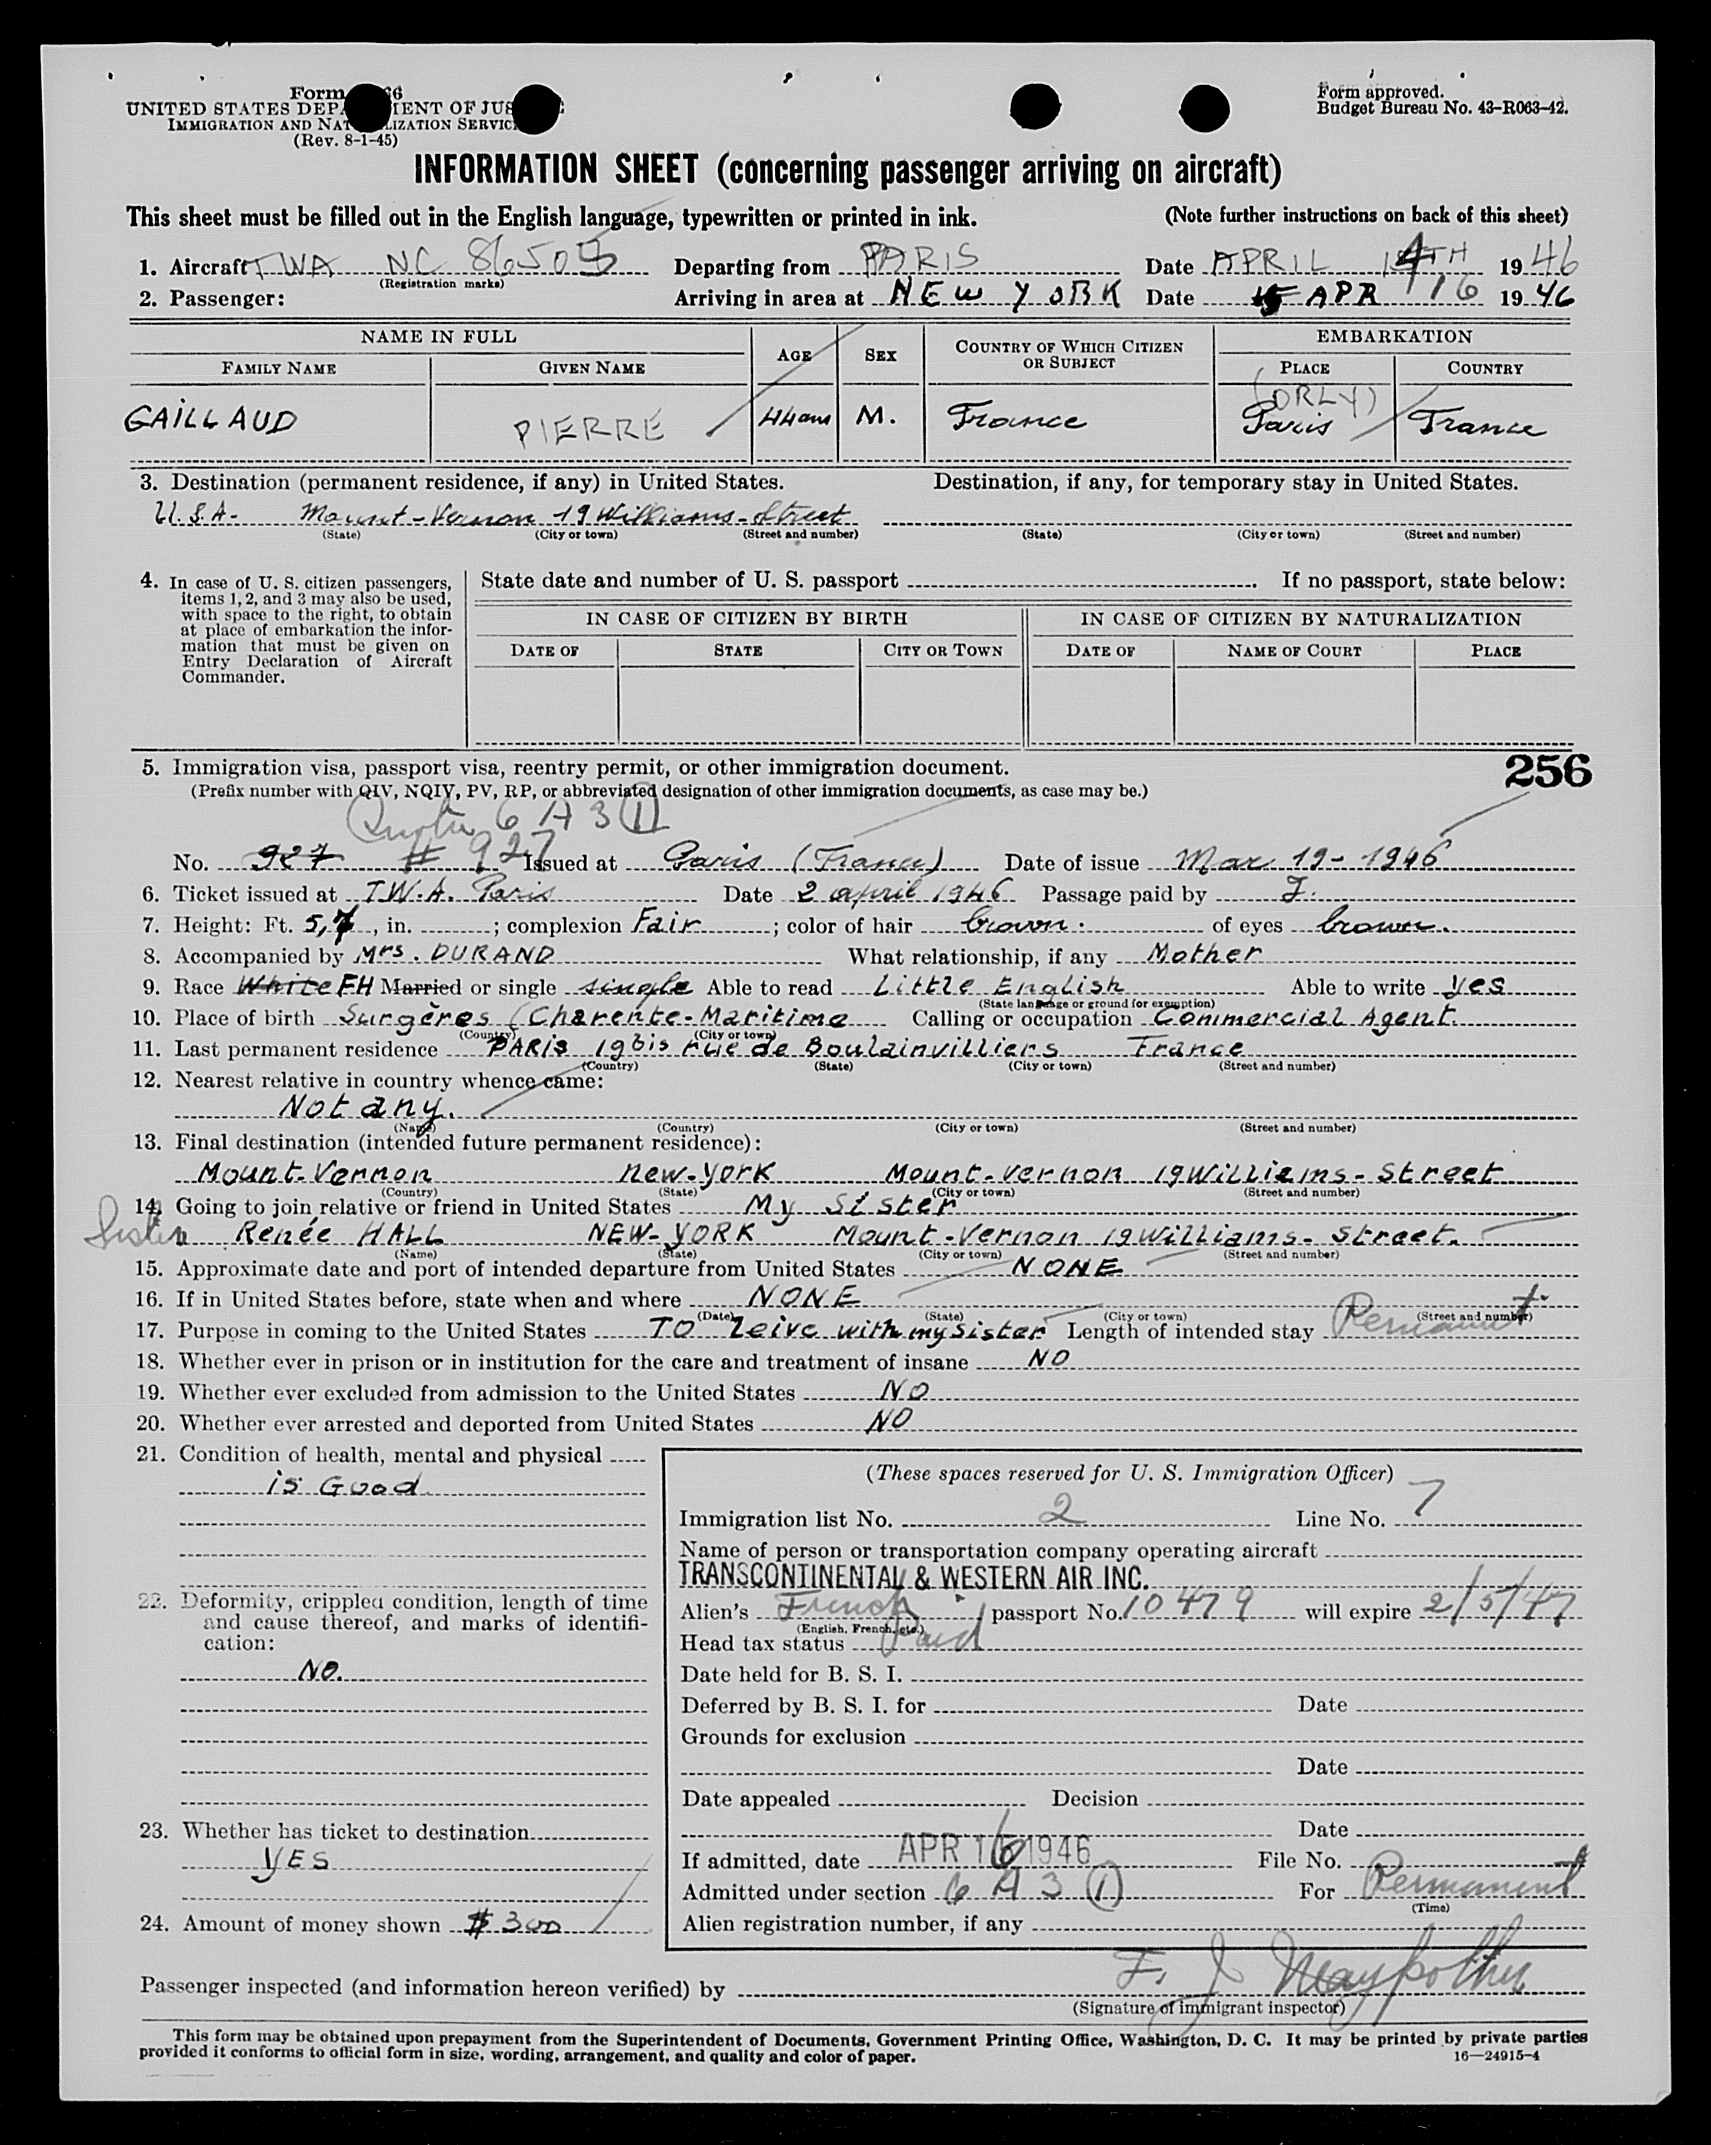 Form 66
UNITED STATES DEPARTMENT OF JUSTICE
IMMIGRATION AND NATURALIZATION SERVICE
(Rev. 8-1-45)
Form approved.
Budget Bureau No. 43-R063-42.
INFORMATION SHEET (concerning passenger arriving on aircraft)
This sheet must be filled out in the English language, typewritten or printed in ink. (Note further instructions on back of this sheet)
1. Aircraft TWA NC 86505 Departing from PARIS Date APRIL 14TH 1946
(Registration marks)
2. Passenger: Arriving in area at NEW YORK Date APR 16 1946
NAME IN FULL AGE SEX COUNTRY OF WHICH CITIZEN OR SUBJECT EMBARKATION
FAMILY NAME GIVEN NAME PLACE COUNTRY
GAILLAUD PIERRE 44 ans M. France (ORLY) Paris France
3. Destination (permanent residence, if any) in United States. Destination, if any, for temporary stay in United States.
U.S.A- Mount-Vernon 19 Williams-Street
(State) (City or town) (Street and number) (State) (City or town) (Street and number)
4. In case of U. S. citizen passengers, items 1, 2, and 3 may also be used, with space to the right, to obtain at place of embarkation the information that must be given on Entry Declaration of Aircraft Commander.
State date and number of U. S. passport . If no passport, state below:
IN CASE OF CITIZEN BY BIRTH IN CASE OF CITIZEN BY NATURALIZATION
DATE OF STATE CITY OR TOWN DATE OF NAME OF COURT PLACE
5. Immigration visa, passport visa, reentry permit, or other immigration document. 256
(Prefix number with QIV, NQIV, PV, RP, or abbreviated designation of other immigration documents, as case may be.)
Quota 6 A 3 (1)
No. 927 # 927 Issued at Paris (France) Date of issue Mar 19-1946
6. Ticket issued at T.W.A. Paris Date 2 april 1946 Passage paid by
7. Height: Ft. 5,7, in. ; complexion Fair ; color of hair brown. of eyes brown.
8. Accompanied by Mrs. DURAND What relationship, if any Mother
9. Race White FH Married or single single Able to read Little English Able to write yes
(State language or ground for exemption)
10. Place of birth Surgères (Charente-Maritime Calling or occupation Commercial Agent.
(Country) (City or town)
11. Last permanent residence PARIS 19bis rue de Boulainvilliers France
(Country) (State) (City or town) (Street and number)
12. Nearest relative in country whence came:
Not any.
(Name) (Country) (City or town) (Street and number)
13. Final destination (intended future permanent residence):
Mount-Vernon New-York Mount-Vernon 19 Williams-Street
(Country) (State) (City or town) (Street and number)
14. Going to join relative or friend in United States My Sister
Sister Renée HALL NEW-YORK Mount-Vernon 19 Williams-Street.
(Name) (State) (City or town) (Street and number)
15. Approximate date and port of intended departure from United States NONE
16. If in United States before, state when and where NONE
(Date) (State) (City or town) (Street and number)
17. Purpose in coming to the United States TO leive with my sister Length of intended stay Permanent
18. Whether ever in prison or in institution for the care and treatment of insane NO
19. Whether ever excluded from admission to the United States NO
20. Whether ever arrested and deported from United States NO
21. Condition of health, mental and physical
is Good
22. Deformity, crippled condition, length of time and cause thereof, and marks of identification:
NO.
23. Whether has ticket to destination
YES
24. Amount of money shown $ 300
(These spaces reserved for U. S. Immigration Officer)
Immigration list No. 2 Line No. 7
Name of person or transportation company operating aircraft
TRANSCONTINENTAL & WESTERN AIR INC.
Alien's French passport No. 10479 will expire 2/5/47
(English, French, etc.)
Head tax status Paid
Date held for B. S. I.
Deferred by B. S. I. for Date
Grounds for exclusion
Date
Date appealed Decision
Date
If admitted, date APR 16 1946 File No.
Admitted under section 6 A 3 (1) For Permanent
(Time)
Alien registration number, if any
Passenger inspected (and information hereon verified) by F. J.
(Signature of immigrant inspector)
This form may be obtained upon prepayment from the Superintendent of Documents, Government Printing Office, Washington, D. C. It may be printed by private parties
provided it conforms to official form in size, wording, arrangement, and quality and color of paper. 16—24915-4